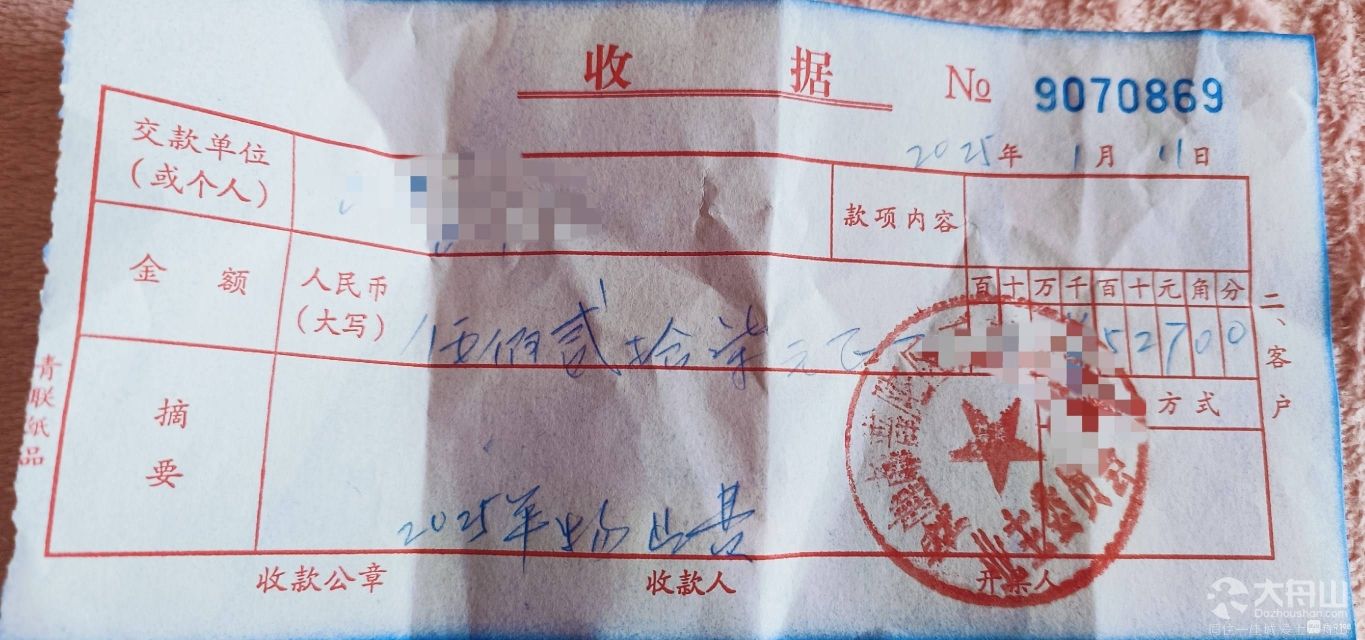 收 据 № 9070869
2025年 1月 11日
交款单位
（或个人）
款项内容
金 额
人民币
（大写）
伍佰贰拾柒元
百十万千百十元角分
52700
方式
摘
要
2025年物业费
收款公章 收款人 开票人
二、客户
青联纸品
业主委员会
大舟山
Dazhoushan.com